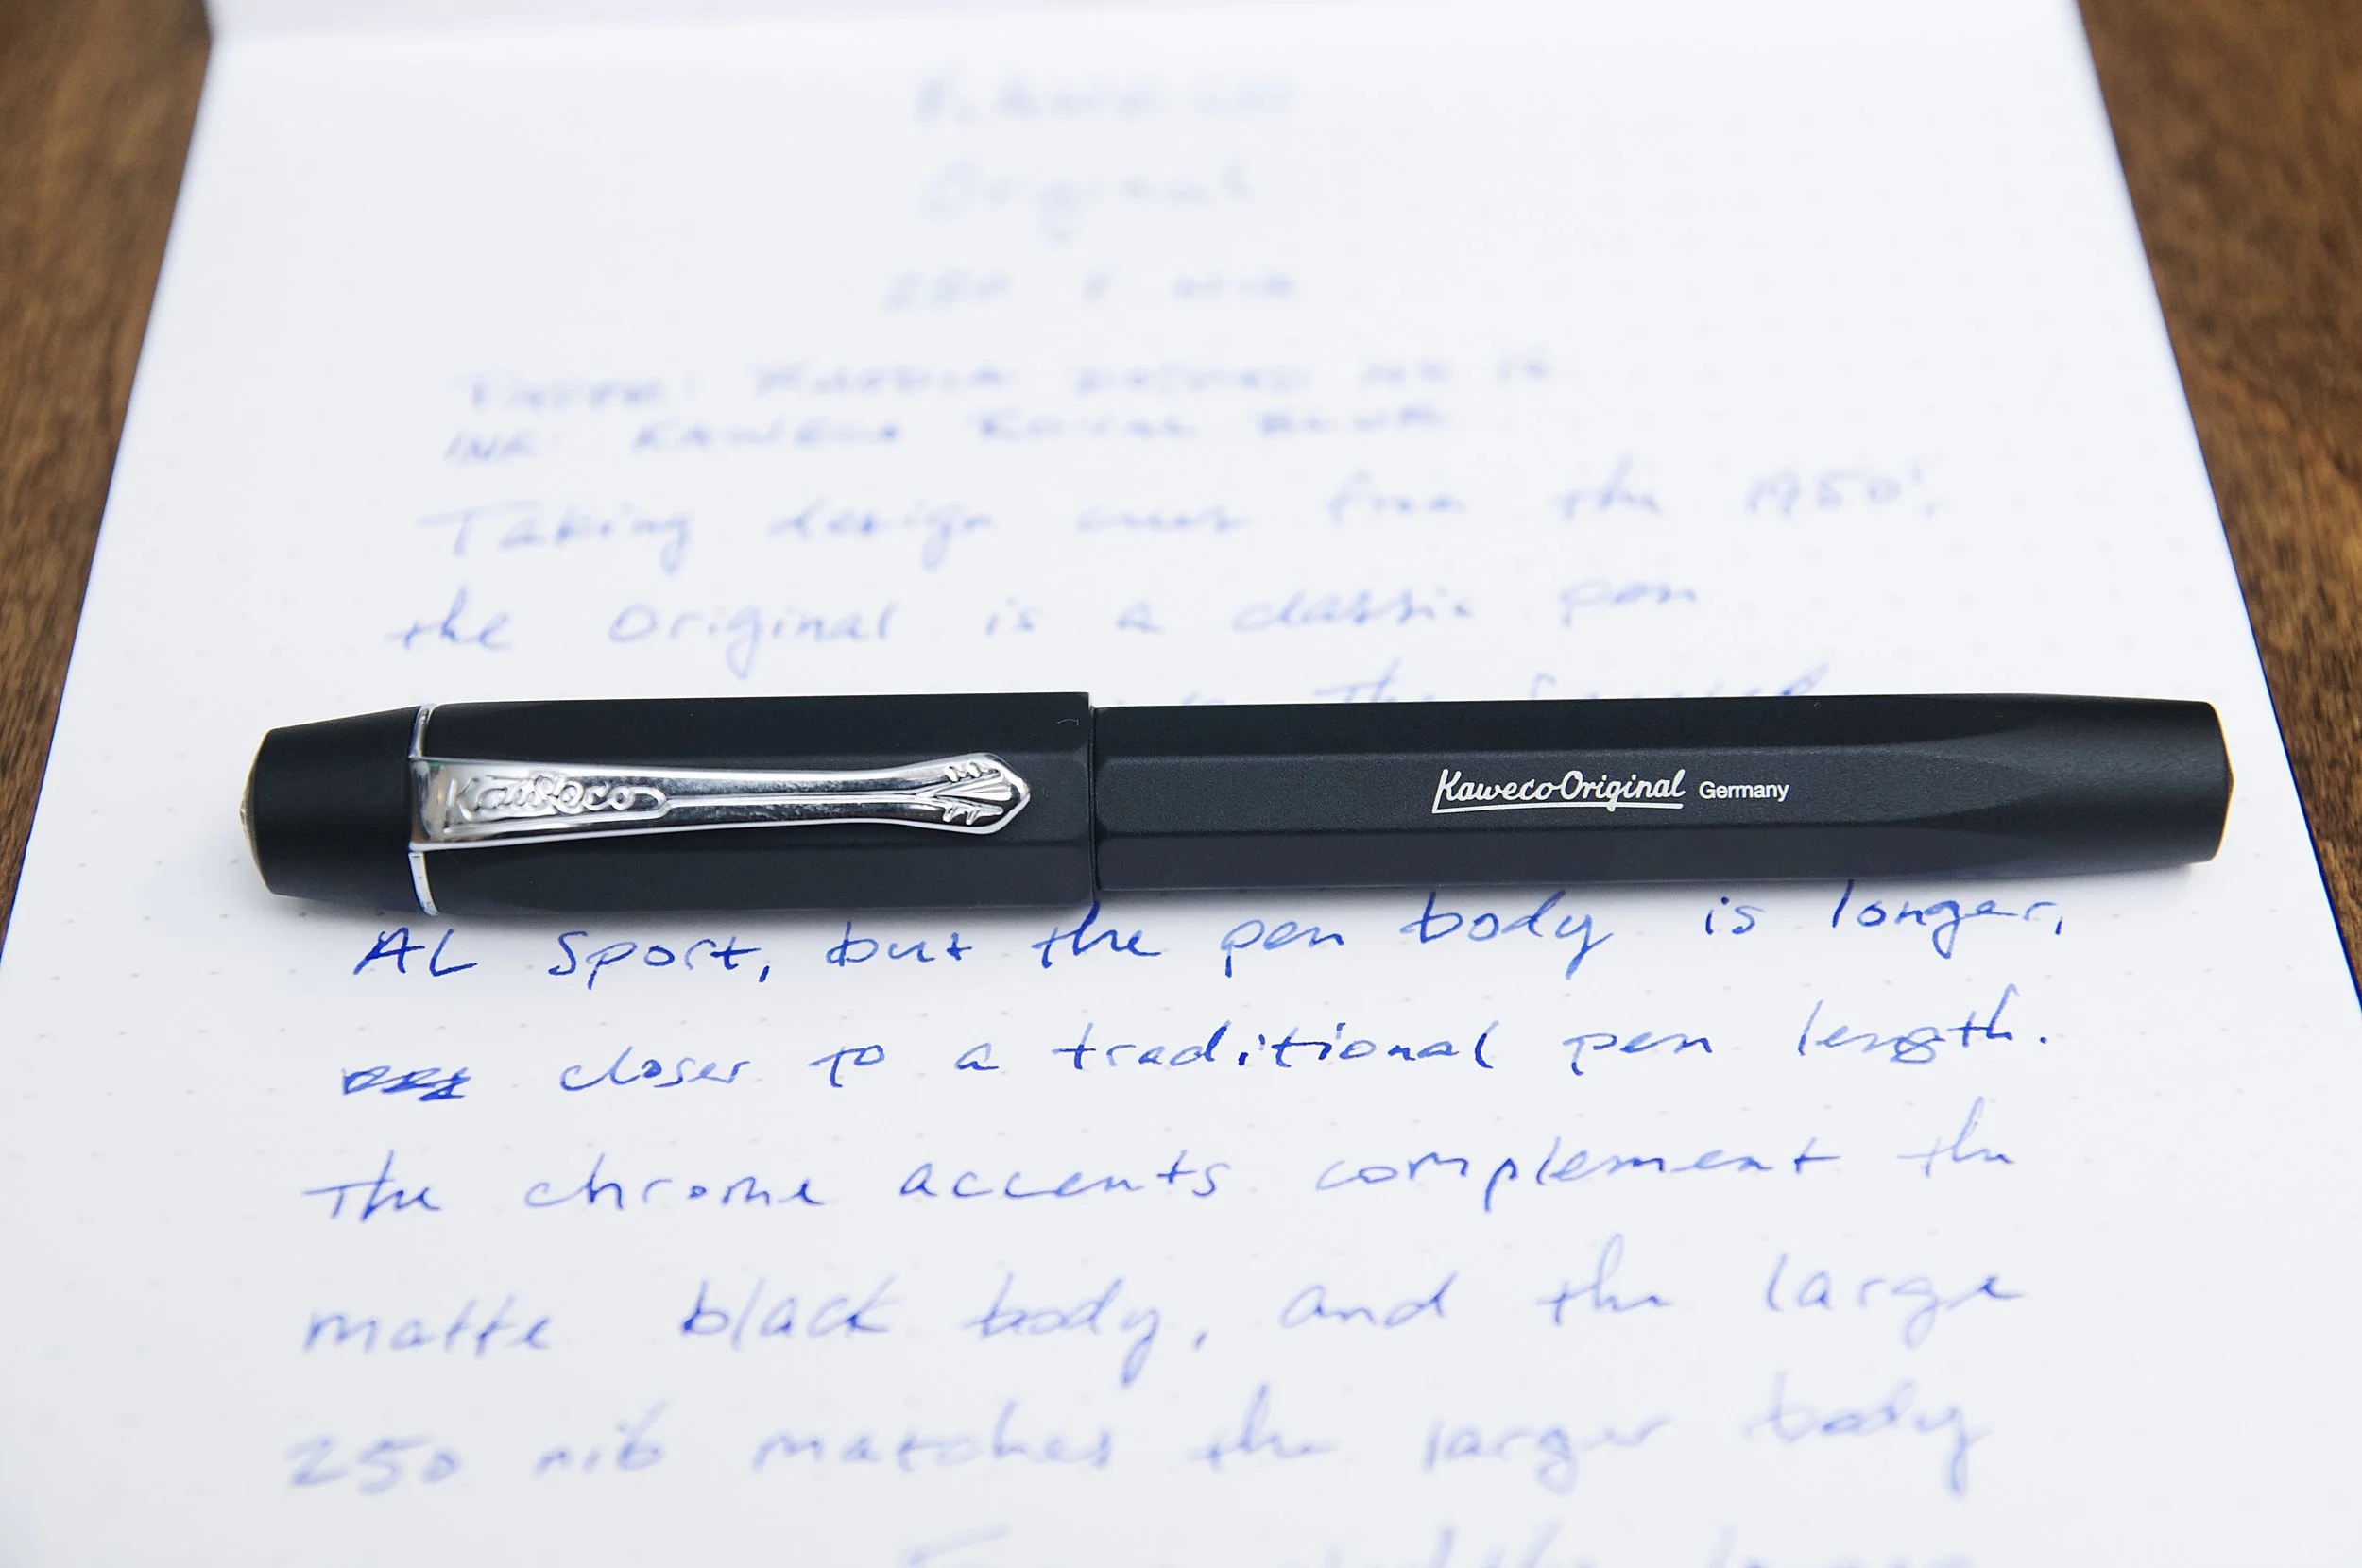 Kaweco
Original
250 F nib
PAPER: RHODIA DOTPAD No 16
INK: KAWECO ROYAL BLUE
Taking design cues from the 1950's
the Original is a classic pen
The
Kaweco
Kaweco Original Germany
AL Sport, but the pen body is longer,
closer to a traditional pen length.
The chrome accents complement the
matte black body, and the large
250 nib matches the larger body